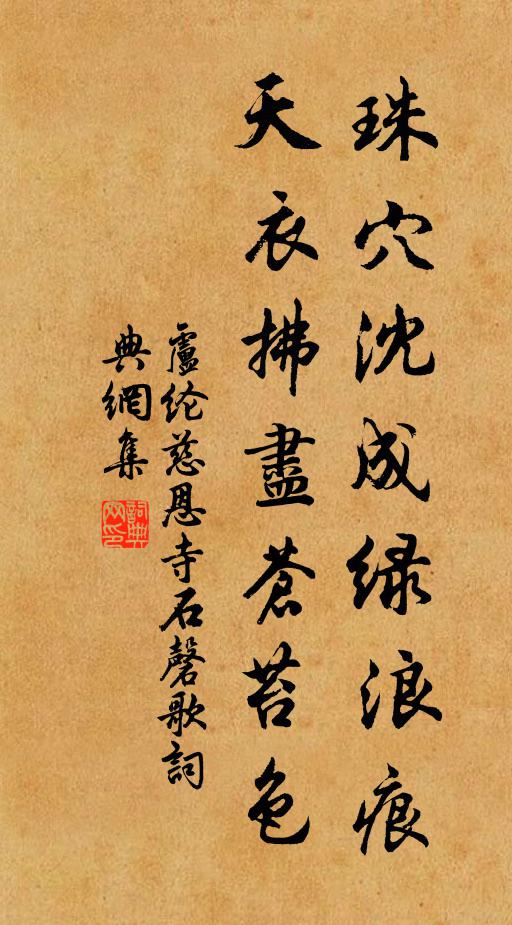 珠穴沈成绿浪痕
天衣拂盡蒼苔色
盧纶慈恩寺石磬歌詞
典網集
詞典网印